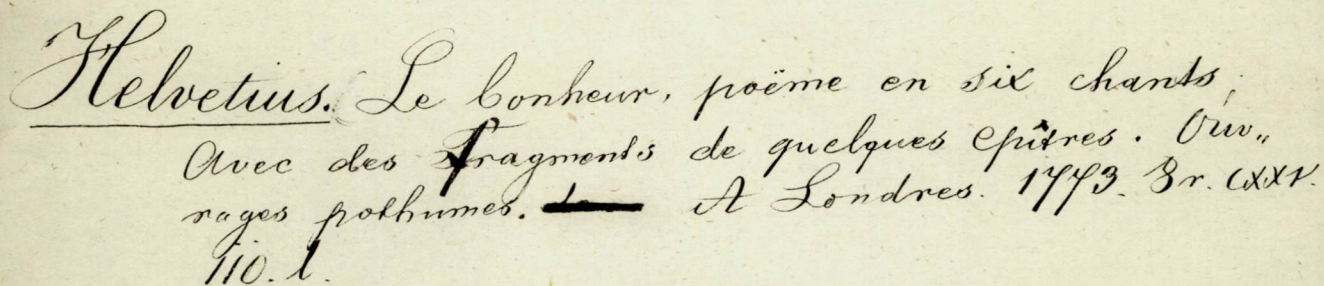 Helvetius. Le bonheur, poëme en six chants,
Avec des fragments de quelques epîtres. Ouv„
rages pothumes. A Londres. 1773. 8r. CXXV.
110. l.